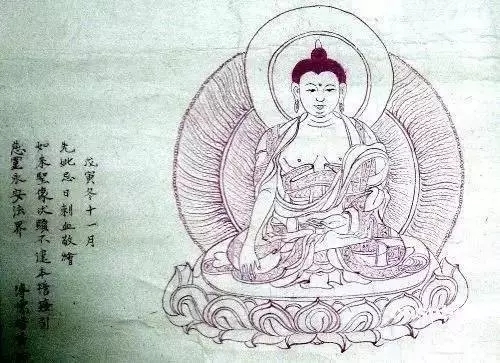 戊寅冬十一月
先妣忌日刺血敬繪
如来聖像伏願不違本誓接引
慈靈永安法界
溥儒